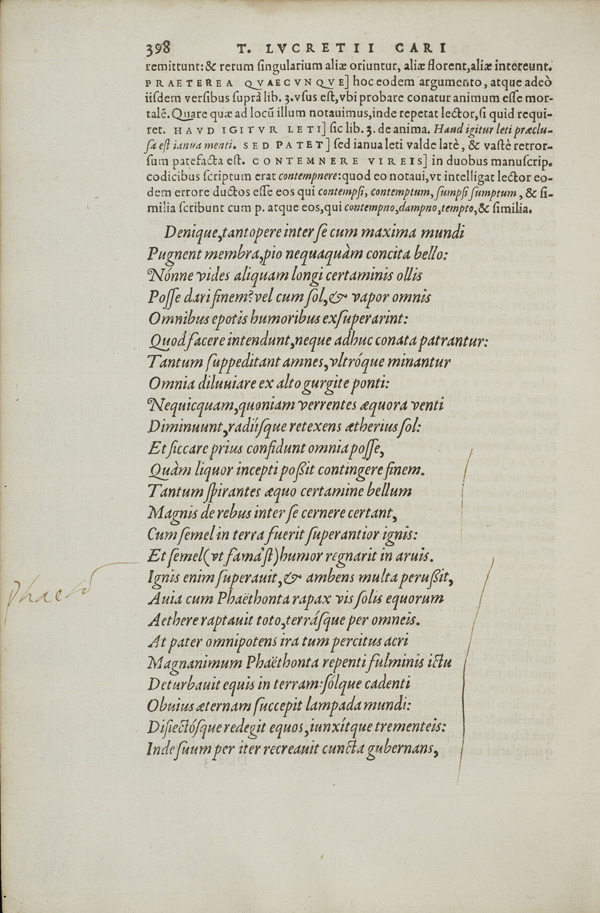 398 T. LVCRETII CARI
remittunt: & rerum ſingularium aliæ oriuntur, aliæ florent, aliæ intereunt.
PRAETEREA QVAECVNQVE] hoc eodem argumento, atque adeò
iiſdem verſibus ſuprà lib. 3. vſus eſt, vbi probare conatur animum eſſe mor-
talẽ. Quare quæ ad locũ illum notauimus, inde repetat lector, ſi quid requi-
ret. HAVD IGITVR LETI] ſic lib. 3. de anima. Haud igitur leti præclu-
ſa eſt ianua menti. SED PATET] ſed ianua leti valde latè, & vaſtè retror-
ſum patefacta eſt. CONTEMNERE VIREIS] in duobus manuſcrip.
codicibus ſcriptum erat contempnere: quod eo notaui, vt intelligat lector eo-
dem errore ductos eſſe eos qui contempſi, contemptum, ſumpſi ſumptum, & ſi-
milia ſcribunt cum p. atque eos, qui contempno, dampno, tempto, & ſimilia.
Denique, tantopere inter ſe cum maxima mundi
Pugnent membra, pio nequaquàm concita bello:
Nónne vides aliquam longi certaminis ollis
Poſſe dari finem? vel cum ſol, & vapor omnis
Omnibus epotis humoribus exſuperarint:
Quod facere intendunt, neque adhuc conata patrantur:
Tantum ſuppeditant amnes, vltróque minantur
Omnia diluuiare ex alto gurgite ponti:
Nequicquam, quoniam verrentes æquora venti
Diminuunt, radiíſque retexens ætherius ſol:
Et ſiccare prius confidunt omnia poſſe,
Quàm liquor incepti poßit contingere finem.
Tantum ſpirantes æquo certamine bellum
Magnis de rebus inter ſe cernere certant,
Cum ſemel in terra fuerit ſuperantior ignis:
Et ſemel (vt fama'ſt) humor regnarit in aruis.
Ignis enim ſuperauit, & ambens multa perußit,
Phaetõ
Auia cum Phaëthonta rapax vis ſolis equorum
Aethere raptauit toto, terráſque per omneis.
At pater omnipotens ira tum percitus acri
Magnanimum Phaëthonta repenti fulminis ictu
Deturbauit equis in terram: ſólque cadenti
Obuius æternam ſuccepit lampada mundi:
Diſiectóſque redegit equos, iunxítque trementeis:
Inde ſuum per iter recreauit cuncta gubernans,